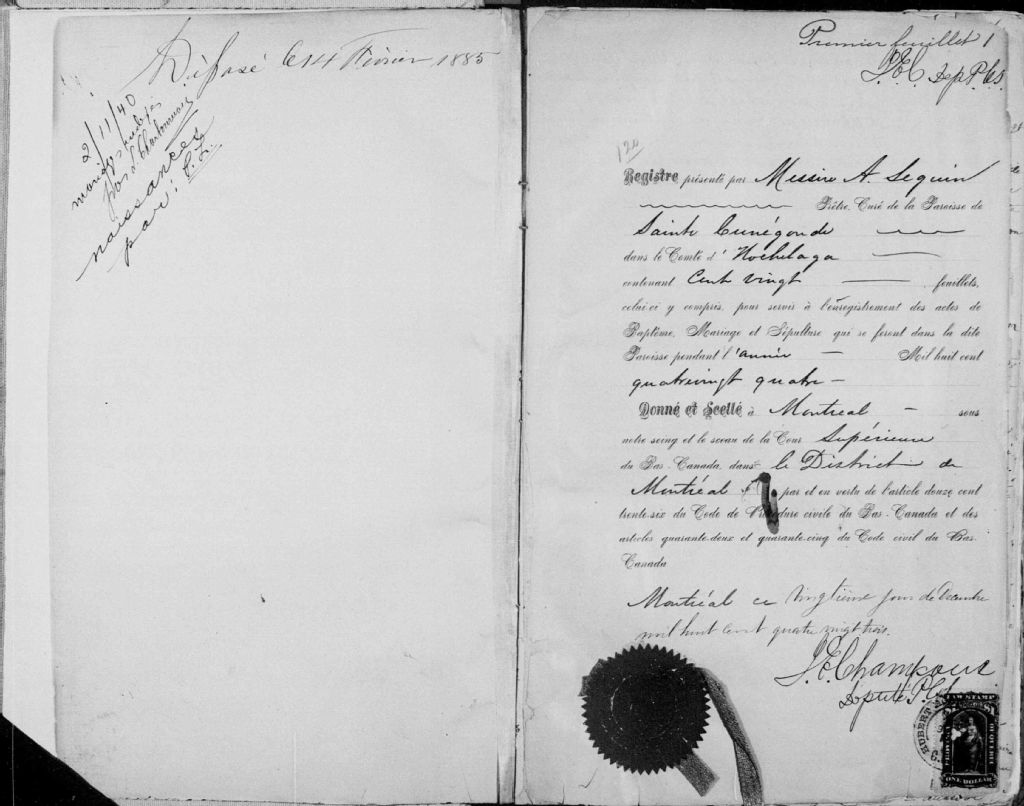 Déposé le 14 Février 1885
2/11/40
mariages indexés
par L. Charbonneau
naissances
par: C. L.
Premier feuillet 1
L.E.C. Dep P.C.S.
120
Registre présenté par Messire A. Seguin
Prêtre, Curé de la Paroisse de
Sainte Cunégonde
dans le Comté d'Hochelaga
contenant Cent vingt feuillets,
celui-ci y compris, pour servir à l'enregistrement des actes de
Baptême, Mariage et Sépulture qui se feront dans la dite
Paroisse pendant l'année Mil huit cent
quatrevingt quatre –
Donné et Scellé à Montreal – sous
notre seing et le sceau de la Cour Supérieure
du Bas-Canada, dans le District de
Montréal par et en vertu de l'article douze cent
trente-six du Code de Procédure civile du Bas-Canada et des
articles quarante-deux et quarante-cinq du Code civil du Bas-
Canada
Montréal ce vingtième jour de Décembre
mil huit cent quatre vingt trois.
L.E. Champoux
Député P.C.S.
LAW STAMP
ONE DOLLAR